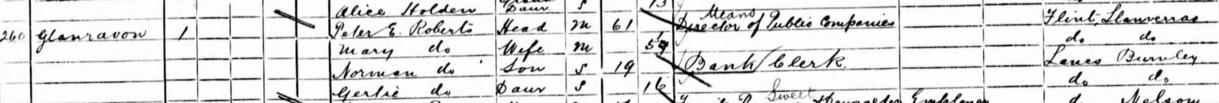 Alice Holden Daur S 13
260 Glanravon 1 Peter E. Roberts Head M 61 Means Director of Public Companies Flint Llanverras
Mary do Wife M 59 do do
Norman do Son S 19 Bank Clerk Lancs Burnley
Gertie do Daur S 16 do do
Sweet Employer do Nelson